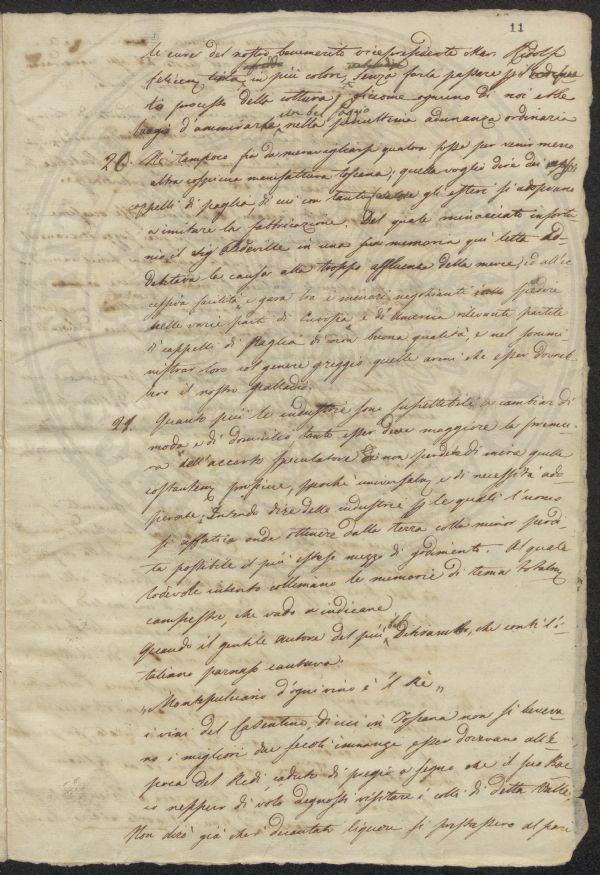 11
le cure del nostro benemerito vicepresidente Mar. Ridolfi
felicem tinta in più colori, senza farla passare
to processo della cottura, siccome ognuno di noi ebbe
un bel saggio
luogo d'ammirarne nella penultima adunanza ordinaria
20. Né tampoco fia da maravigliarsi qualora fosse per venir meno
altra cospicua manifattura toscana, quella voglio dire dei
cappelli di paglia di cui con tanto gli esteri si adoprano
a imitare la fabbricazione. Del quale minacciato infortu
nio il sig in una sua memoria qui letta ad-
debitava la causa alla troppo affluenza della merce, ed all'ec
cessiva facilità e gara tra i minori negozianti spedire
nelle varie parti di Europa e di America rilevanti partite
di cappelli di Paglia di non buona qualità, e nel sommi
nistrar loro in genere greggio quelle armi che esser dovreb
bero il nostro palladio.
21. Quanto più le industrie sono suscettibili a cambiar di
moda e di domicilio tanto esser deve maggiore la premu
ra dell'accorto speculatore di non perdere di mira quelle
costantem proficue, perché universalm e di necessità ado
perate. Intendo dire delle industrie p le quali l'uomo
si affatica onde ottenere dalla terra colla minor perdi-
ta possibile il più esteso mezzo di godimenti. Al quale
lodevole intento collimano le memorie di tema totalm
campestre, che vado a indicare
bel
Quando il gentile autore del più Ditirambo, che conti l'i-
taliano parnaso cantava:
"Montepulciano d'ogni vino è il Re"
i vini del Casentino, di cui in Toscana non si beveva-
no i migliori due secoli innanzi esser dovevano all'E-
poca del Redi caduti di pregio a segno che il suo Bac
co neppur di volo degnossi visitare i colli di detta Valle.
Non dirò già che diventati liquori si prestassero al pari